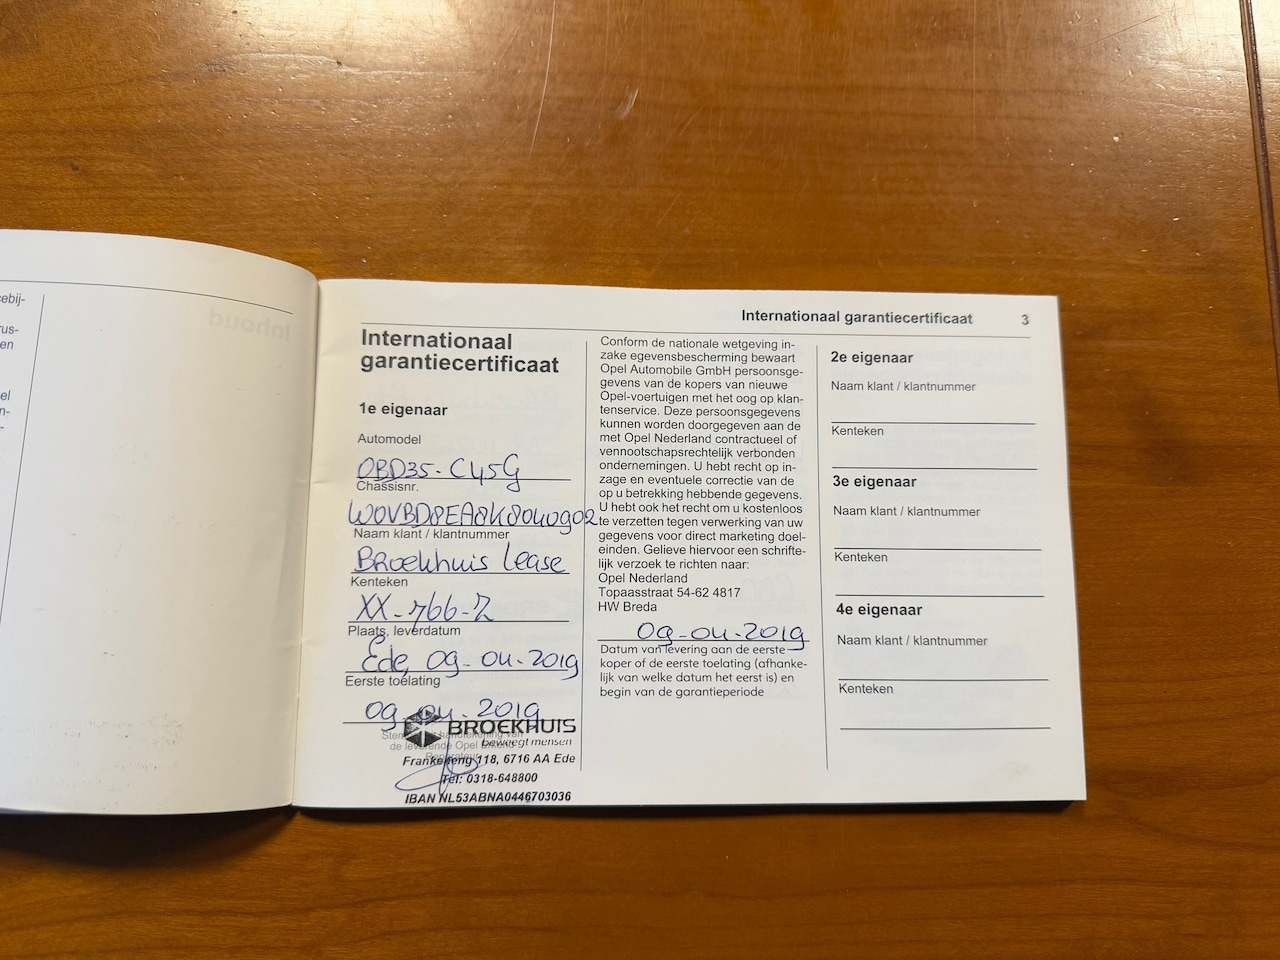 cebij-
rus-
en
el
n-
Inhoud
Internationaal garantiecertificaat 3
Internationaal
garantiecertificaat
1e eigenaar
Automodel
OBD35-C45G
Chassisnr.
W0VBD8EA8K8040902
Naam klant / klantnummer
Broekhuis Lease
Kenteken
XX-766-Z
Plaats, leverdatum
Ede, 09-04-2019
Eerste toelating
09-04-2019
BROEKHUIS
beweegt mensen
de leverende Opel Erkend
Frankeneng 118, 6716 AA Ede
Tel: 0318-648800
IBAN NL53ABNA0446703036
Conform de nationale wetgeving in-
zake egevensbescherming bewaart
Opel Automobile GmbH persoonsge-
gevens van de kopers van nieuwe
Opel-voertuigen met het oog op klan-
tenservice. Deze persoonsgegevens
kunnen worden doorgegeven aan de
met Opel Nederland contractueel of
vennootschapsrechtelijk verbonden
ondernemingen. U hebt recht op in-
zage en eventuele correctie van de
op u betrekking hebbende gegevens.
U hebt ook het recht om u kosteloos
te verzetten tegen verwerking van uw
gegevens voor direct marketing doel-
einden. Gelieve hiervoor een schrifte-
lijk verzoek te richten naar:
Opel Nederland
Topaasstraat 54-62 4817
HW Breda
09-04-2019
Datum van levering aan de eerste
koper of de eerste toelating (afhanke-
lijk van welke datum het eerst is) en
begin van de garantieperiode
2e eigenaar
Naam klant / klantnummer
Kenteken
3e eigenaar
Naam klant / klantnummer
Kenteken
4e eigenaar
Naam klant / klantnummer
Kenteken